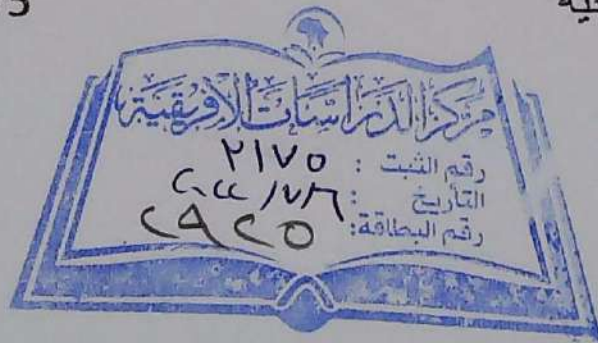 مركز الدراسات الأفريقية
رقم الثبت : ٢١٧٥
التأريخ : ٢٠٢٢/٧/٦
رقم البطاقة: ٢٩٢٥